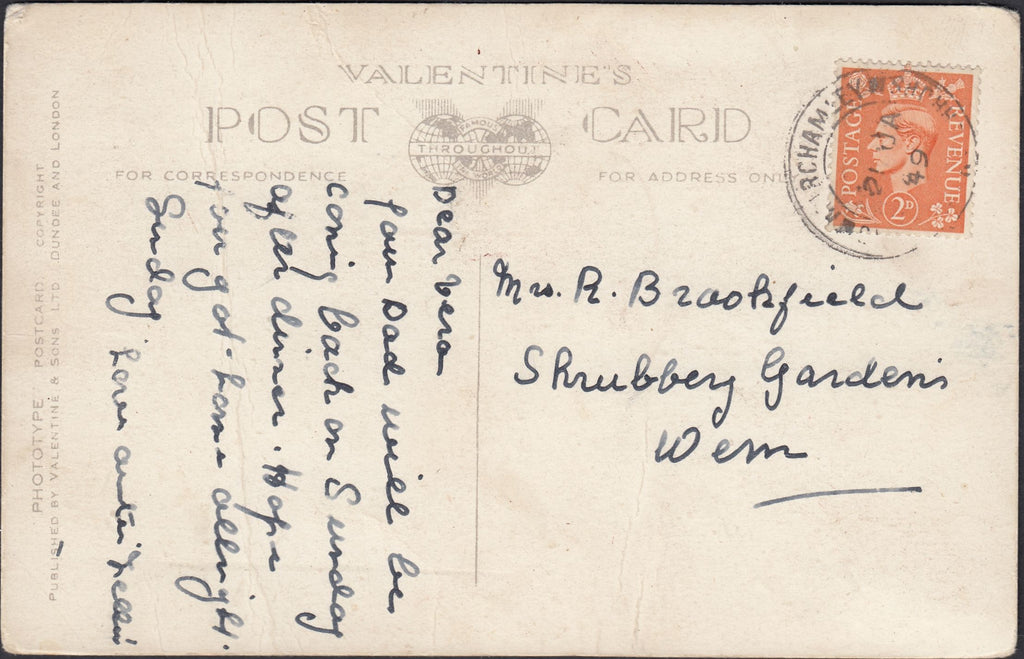 VALENTINE'S
POST CARD
FAMOUS
THROUGHOUT
THE WORLD
FOR CORRESPONDENCE
FOR ADDRESS ONL
POSTAGE
REVENUE
2D
MARCHAMLEY
21 JA
49
Dear Vera
Your Dad will be
coming back on Sunday
after dinner. Hope
you got home allright.
Sunday Love auntie Nellie
Mrs. R. Brookfield
Shrubbery Gardens
Wem
PHOTOTYPE POSTCARD COPYRIGHT
PUBLISHED BY VALENTINE & SONS LTD. DUNDEE AND LONDON